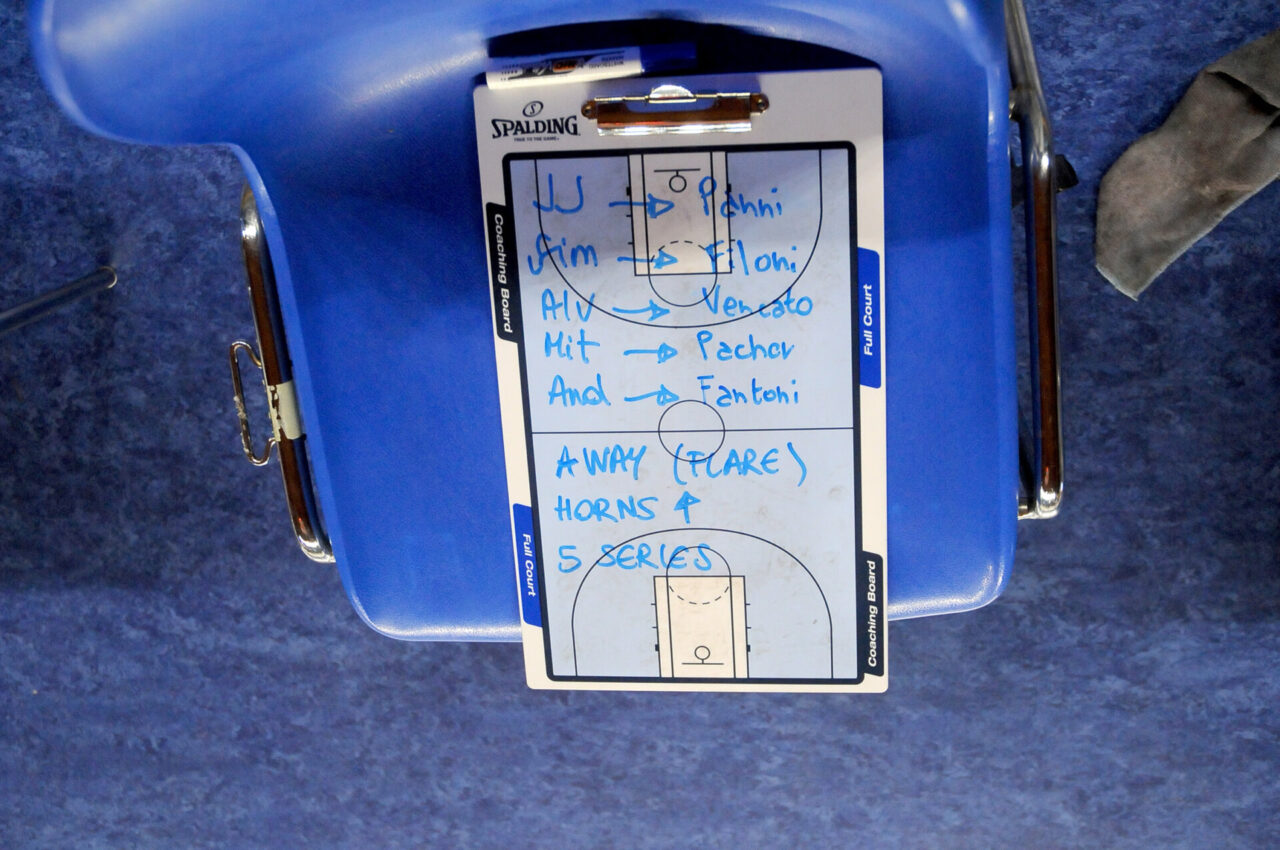 SPALDING
TRUE TO THE GAME
Coaching Board
Full Court
JJ → Panni
Sim → Filoni
Alv → Vencato
Mit → Pachor
And → Fantoni
AWAY (FLARE)
HORNS ↑
5 SERIES
Full Court
Coaching Board